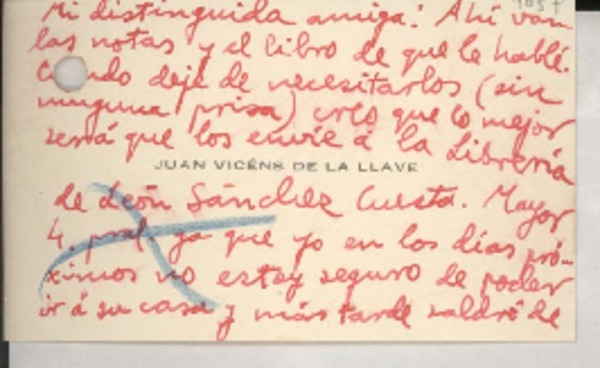 Mi distinguida amiga: Ahí van
las notas y el libro de que le hablé.
Cuando deje de necesitarlos (sin
ninguna prisa) creo que lo mejor
será que los envíe á la Librería
JUAN VICÉNS DE LA LLAVE
de León Sánchez Cuesta. Mayor
4. pral. ya que yo en los días pró-
ximos no estoy seguro de poder
ir á su casa y más tarde saldré de